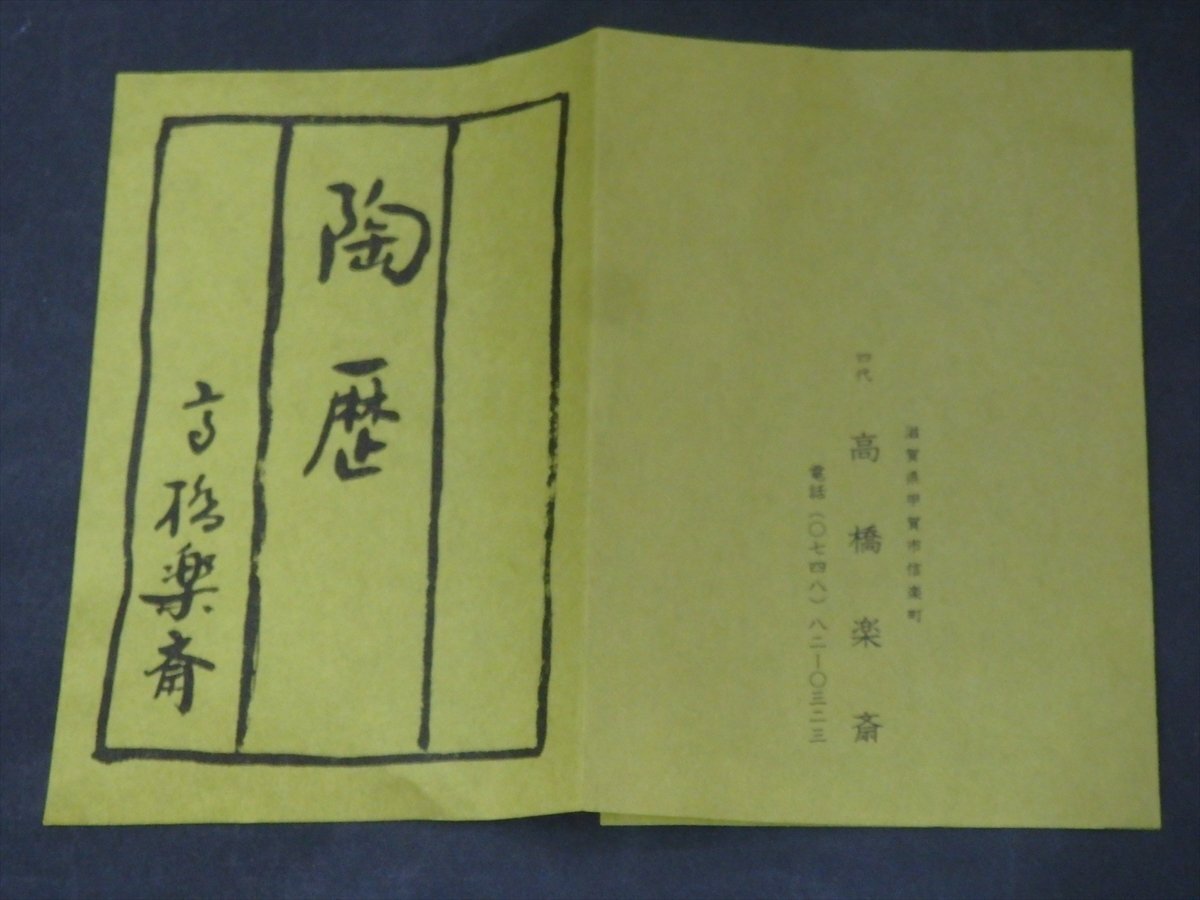 陶歴
高橋楽斎
滋賀県甲賀市信楽町
四代 高橋楽斎
電話(〇七四八)八二ー〇三二三